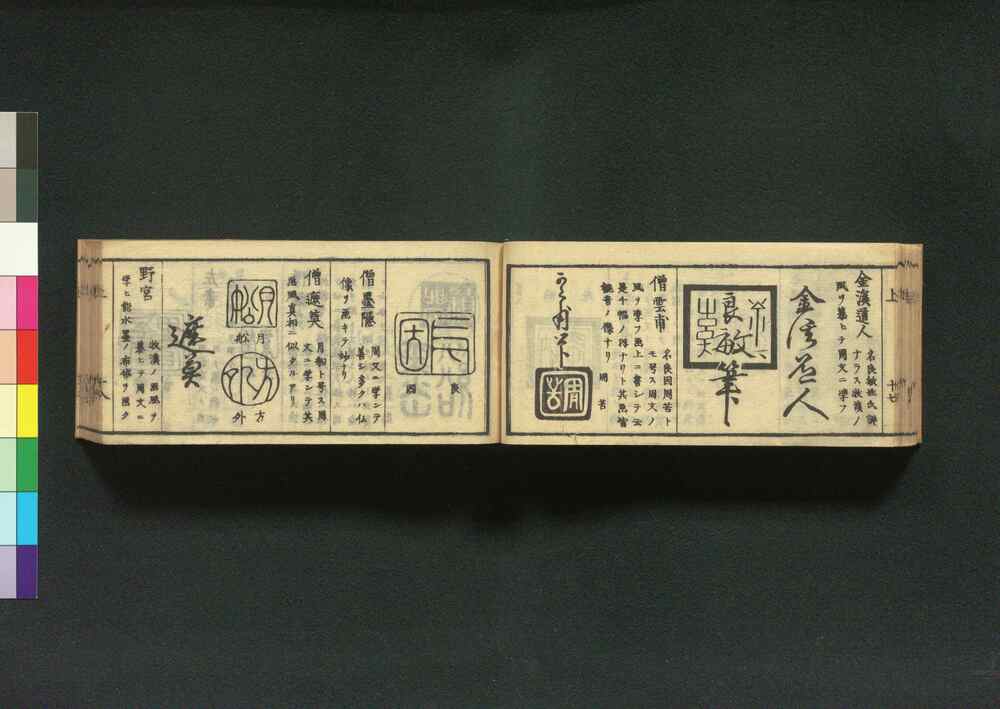 上
十七
金溪道人
名良敏姓氏詳
ナラス牧溪ノ
風ヲ慕ヒテ周文ニ学フ
良敏
筆
僧雲甫
名良因周若ト
モ号ス周文ノ
風ヲ学フ画上ニ書シテ云
是千幅ノ得ナリト其画皆
観音ノ像ナリ
周若
良
因
僧墨隠
周文ニ学ンテ
善シ多クハ仏
像ヲ画キテ妙ナリ
僧遮莫
月船ト号ス周
文ニ学ンテ其
画風真相ニ似タルアリ
月
船
方
外
遮莫
野宮
牧溪ノ画風ヲ
慕ヒテ周文ニ
学ヒ能水墨ノ布袋ヲ画ク